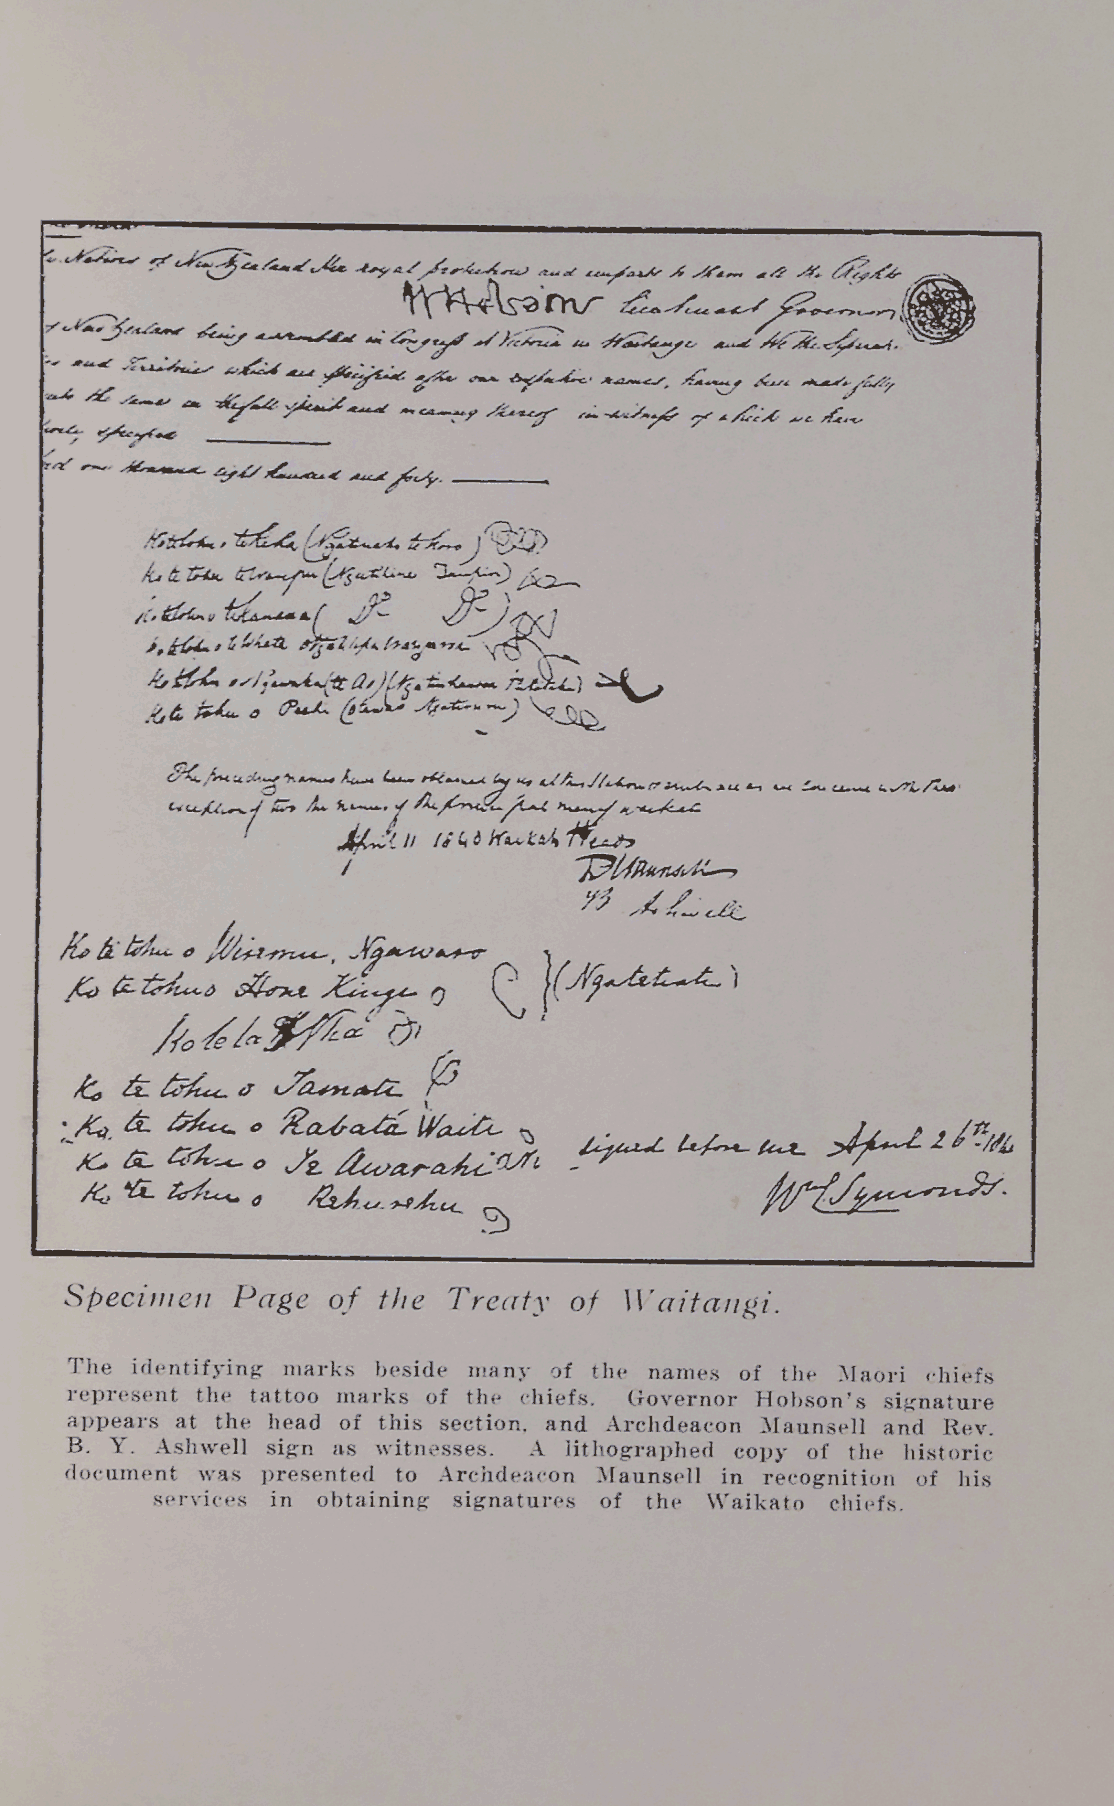 Natives of New Zealand Her royal protection and imparts to them all the Rights
W Hobson Lieutenant Governor
New Zealand being assembled in Congress at Victoria in Waitangi and We the Separate
and Territories which are specified after our respective names, having been made fully
the same in the full spirit and meaning thereof in witness of which we have
specified
one thousand eight hundred and forty.
Ko te tohu o te Keha
Ko te tohu
Ko te tohu o te Kanawa ( Do Do )
Ko te tohu o te Whata
Ko te tohu o
Ko te tohu o Peehi
The preceding names have been obtained by us at this Station
exception of two the names of the principal men of Waikato
April 11 1840 Waikato Heads
R Maunsell
Ashwell
Ko te tohu o Wiremu, Ngawaro
Ko te tohu o Hone Kinge (Ngateteata)
Ko te ta
Ko te tohu o Tamati
Ko te tohu o Rabata Waiti
Ko te tohu o Te Awarahi
Ko te tohu o Rehurehu
signed before me April 26th 184
Wm C. Symonds.
Specimen Page of the Treaty of Waitangi.
The identifying marks beside many of the names of the Maori chiefs
represent the tattoo marks of the chiefs. Governor Hobson's signature
appears at the head of this section, and Archdeacon Maunsell and Rev.
B. Y. Ashwell sign as witnesses. A lithographed copy of the historic
document was presented to Archdeacon Maunsell in recognition of his
services in obtaining signatures of the Waikato chiefs.